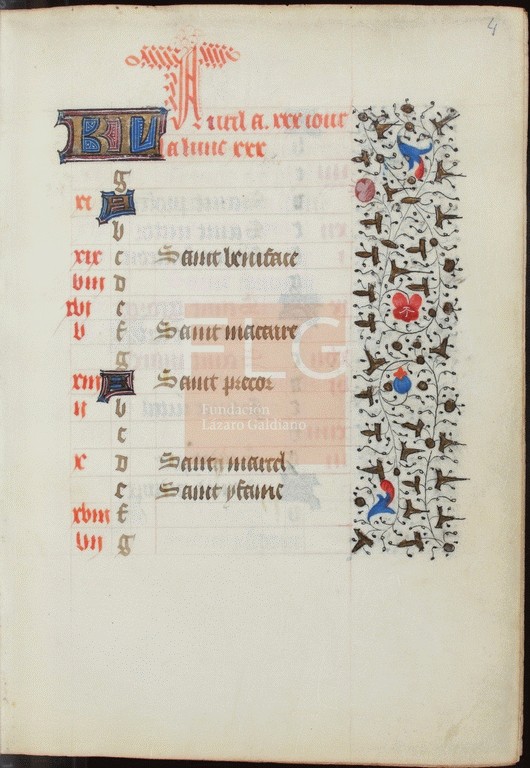 4
Auril a. xxx iour
KL
a lune xxx
g
xi A
b
xix c Saint boniface
viii d
xvi e
v f Saint macaire
g
xiii A Saint precor
ii b
c
x d Saint marcel
e Saint ysaac
xviii f
vii g
FLG
Fundación
Lázaro Galdiano